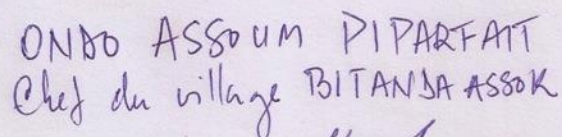 ONDO ASSOUM DIPARFAIT
Chef du village BITANDA ASSOK